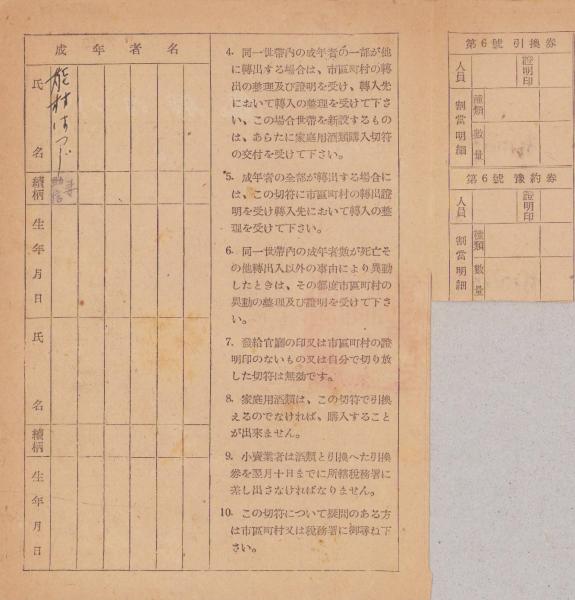 成年者名
氏名
續柄
生年月日
氏名
續柄
生年月日
4. 同一世帶内の成年者の一部が他
に轉出する場合は、市區町村の轉
出の整理及び證明を受け、轉入先
において轉入の整理を受けて下さ
い、この場合世帶を新設するもの
は、あらたに家庭用酒類購入切符
の交付を受けて下さい。
5. 成年者の全部が轉出する場合に
は、この切符に市區町村の轉出證
明を受け轉入先において轉入の整
理を受けて下さい。
6. 同一世帶内の成年者數が死亡そ
の他轉出入以外の事由により異動
したときは、その都度市區町村の
異動の整理及び證明を受けて下さ
い。
7. 發給官廳の印又は市區町村の證
明印のないもの又は自分で切り放
した切符は無効です。
8. 家庭用酒類は、この切符で引換
えるのでなければ、購入すること
が出來ません。
9. 小賣業者は酒類と引換へた引換
券を翌月十日までに所轄税務署に
差し出さなければなりません。
10. この切符について疑問のある方
は市區町村又は税務署に御尋ね下
さい。
第6號 引換券
人員
證明印
割當明細
種類
數量
第6號 豫約券
人員
證明印
割當明細
種類
數量